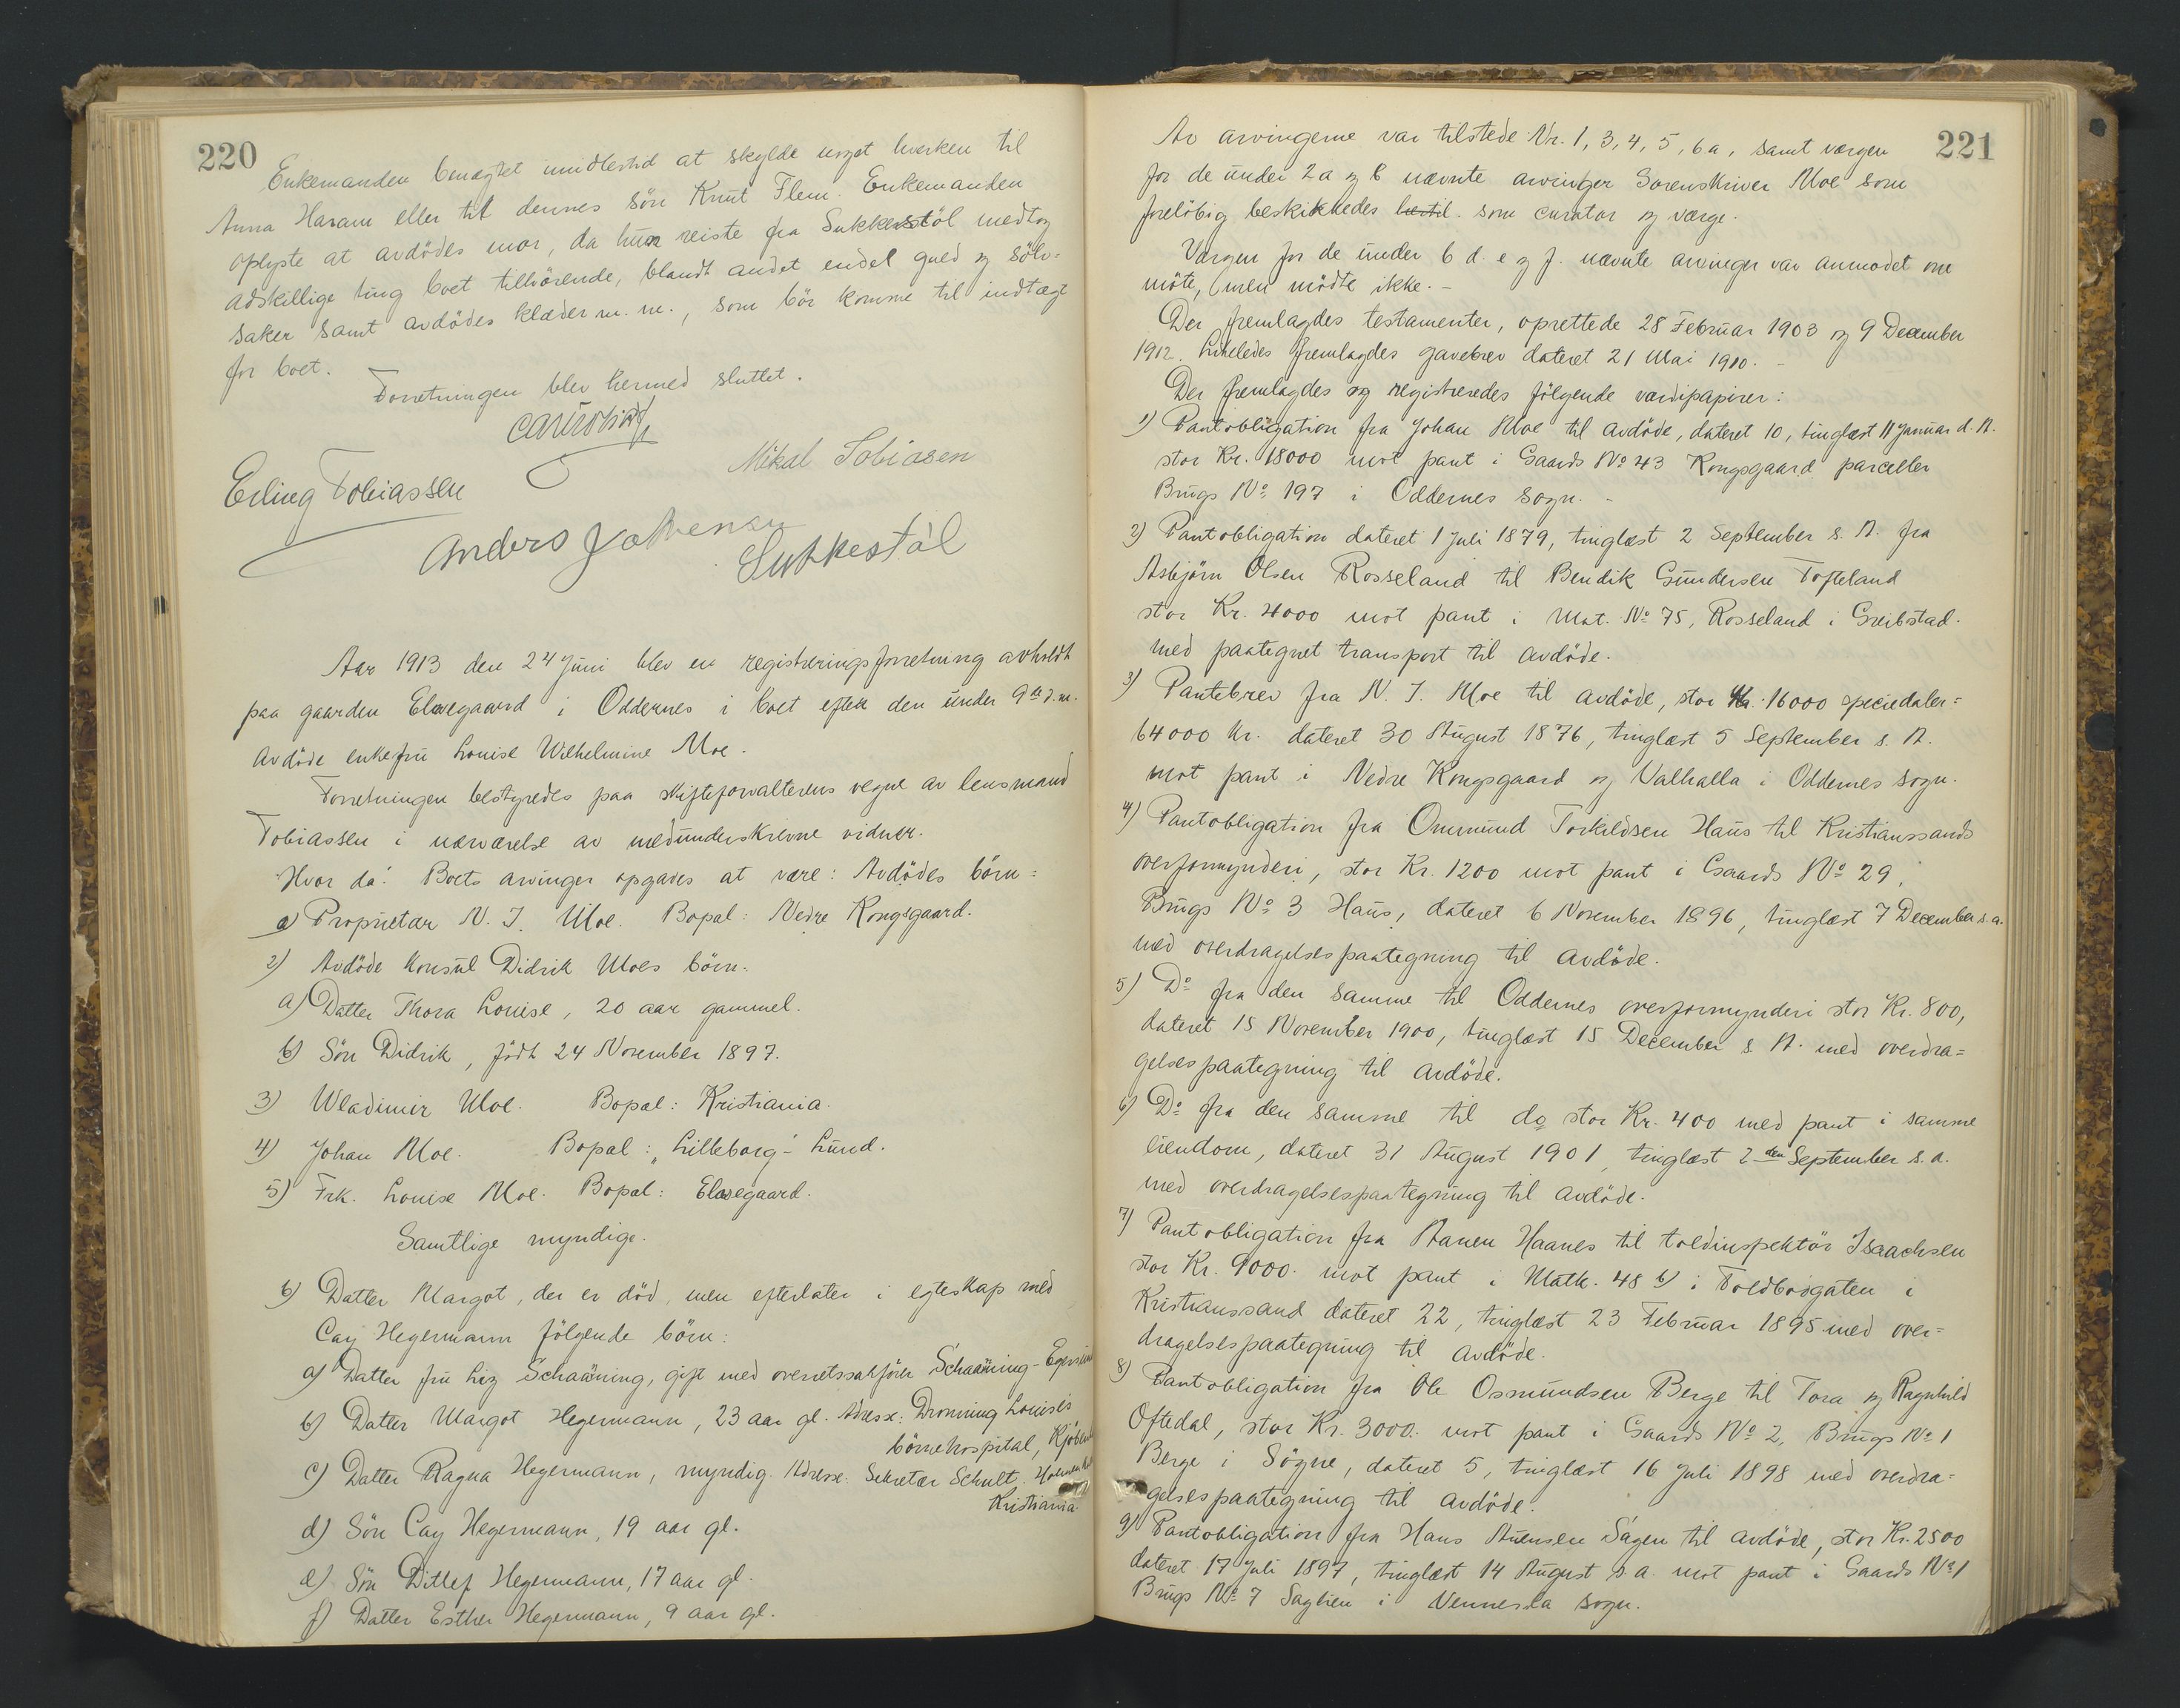 220
Enkemanden benægtet imidlertid at skylde noget hverken til
Anna Haram eller til dennes sön Knut Flem. Enkemanden
oplyste at avdödes mor, da hun reiste fra Sukkestöl medtog
adskillige ting boet tilhörende, blandt andet endel guld og sölv-
saker samt avdödes klæder m. m., som bör komme til indtægt
for boet.
Forretningen blev hermed sluttet.
Mikal Tobiasen
Erling Tobiassen
Anders Jahnensen
Sukkestöl
Aar 1913 den 24 Juni blev en registreringsforretning avholdt
paa gaarden Elvegaard i Oddernes i boet efter den under 9de d. m.
avdöde enkefru Louise Wilhelmine Moe.
Forretningen bestyredes paa skifteforvalterens vegne av lensmand
Tobiassen i nærværelse av medunderskrevne vidner.
Hvor da: Boets arvinger opgaves at være: Avdödes börn:
a) Proprietær N. J. Moe. Bopæl: Nedre Kongsgaard.
2) Avdöde konsul Didrik Moes börn:
a) Datter Thora Louise, 20 aar gammel.
b) Sön Didrik, födt 24 November 1897.
3) Wladimir Moe. Bopæl: Kristiania.
4) Johan Moe. Bopæl: "Lilleborg" Lund.
5) Frk. Louise Moe. Bopæl: Elvegaard.
Samtlige myndige.
6) Datter Margot, der er död, men efterlater i egteskap med
Cay Hegermann fölgende börn:
a) Datter fru Liz Schaaning, gift med overretssakförer Schaaning - Egersund
b) Datter Margot Hegermann, 23 aar gl. Adresse: Dronning Louises
börnehospital, Kjöbenh
c) Datter Ragna Hegermann, myndig. Adresse: Sekretær Schult.
Kristiania
d) Sön Cay Hegermann, 19 aar gl.
e) Sön Ditlef Hegermann, 17 aar gl.
f) Datter Esther Hegermann, 9 aar gl.
221
Av arvingerne var tilstede Nr. 1, 3, 4, 5, 6a, samt værgen
for de under 2a og b nævnte arvinger Sorenskriver Moe som
forelöbig beskikkedes hertil. som curator og værge.
Værgen for de under 6 d. e og f. nævnte arvinger var anmodet om
möte, men mödte ikke. -
Der fremlagdes testamenter, oprettede 28 Februar 1903 og 9 December
1912. Likeledes fremlagdes gavebrev dateret 21 Mai 1910. -
Der fremlagdes og registreredes fölgende værdipapirer:
1) Pantobligation fra Johan Moe til avdöde, dateret 10, tinglæst 11 Januar d. A.
stor Kr. 18000 mot pant i Gaards No 43 Kongsgaard parceller
Brugs No 197 i Oddernes sogn. -
2) Pantobligation dateret 1 Juli 1879, tinglæst 2 September s. A. fra
Asbjörn Olsen Rosseland til Bendik Gundersen Tofteland
stor Kr. 4000 mot pant i Mat. No 75, Rosseland i Greibstad.
med paategnet transport til avdöde.
3) Pantebrev fra N. J. Moe til avdöde, stor Kr. 16000 speciedaler =
64000 Kr. dateret 30 August 1876, tinglæst 5 September s. A.
mot pant i Nedre Kongsgaard og Valhalla i Oddernes sogn.
4) Pantobligation fra Ommund Torkildsen Haus til Kristianssands
overformynderi, stor Kr. 1200 mot pant i Gaards No 29,
Brugs No 3 Haus, dateret 6 November 1896, tinglæst 7 December s. a.
med overdragelsespaategning til avdöde.
5) Do fra den samme til Oddernes overformynderi stor Kr. 800,
dateret 15 November 1900, tinglæst 15 December s. A. med overdra=
gelsespaategning til avdöde.
6) Do fra den samme til do stor Kr. 400 med pant i samme
eiendom, dateret 31 August 1901, tinglæst 2den September s. a.
med overdragelsespaategning til avdöde.
7) Pantobligation fra Aanen Haanes til toldinspektör Isaachsen
stor Kr. 9000. mot pant i Matk. 48 b) i Toldbodgaten i
Kristianssand dateret 22, tinglæst 23 Februar 1895 med over=
dragelsespaategning til avdöde.
8) Pantobligation fra Ole Osmundsen Berge til Tora og Ragnhild
Oftedal, stor Kr. 3000. mot pant i Gaards No 2, Brugs No 1
Berge i Sögne, dateret 5, tinglæst 16 Juli 1898 med overdra=
gelsespaategning til avdöde.
9) Pantobligation fra Hans Auensen Sagen til avdöde, stor Kr. 2500
dateret 17 Juli 1897, tinglæst 14 August s. a. mot pant i Gaards No 1
Brugs No 7 Saglien i Vennesla sogn.